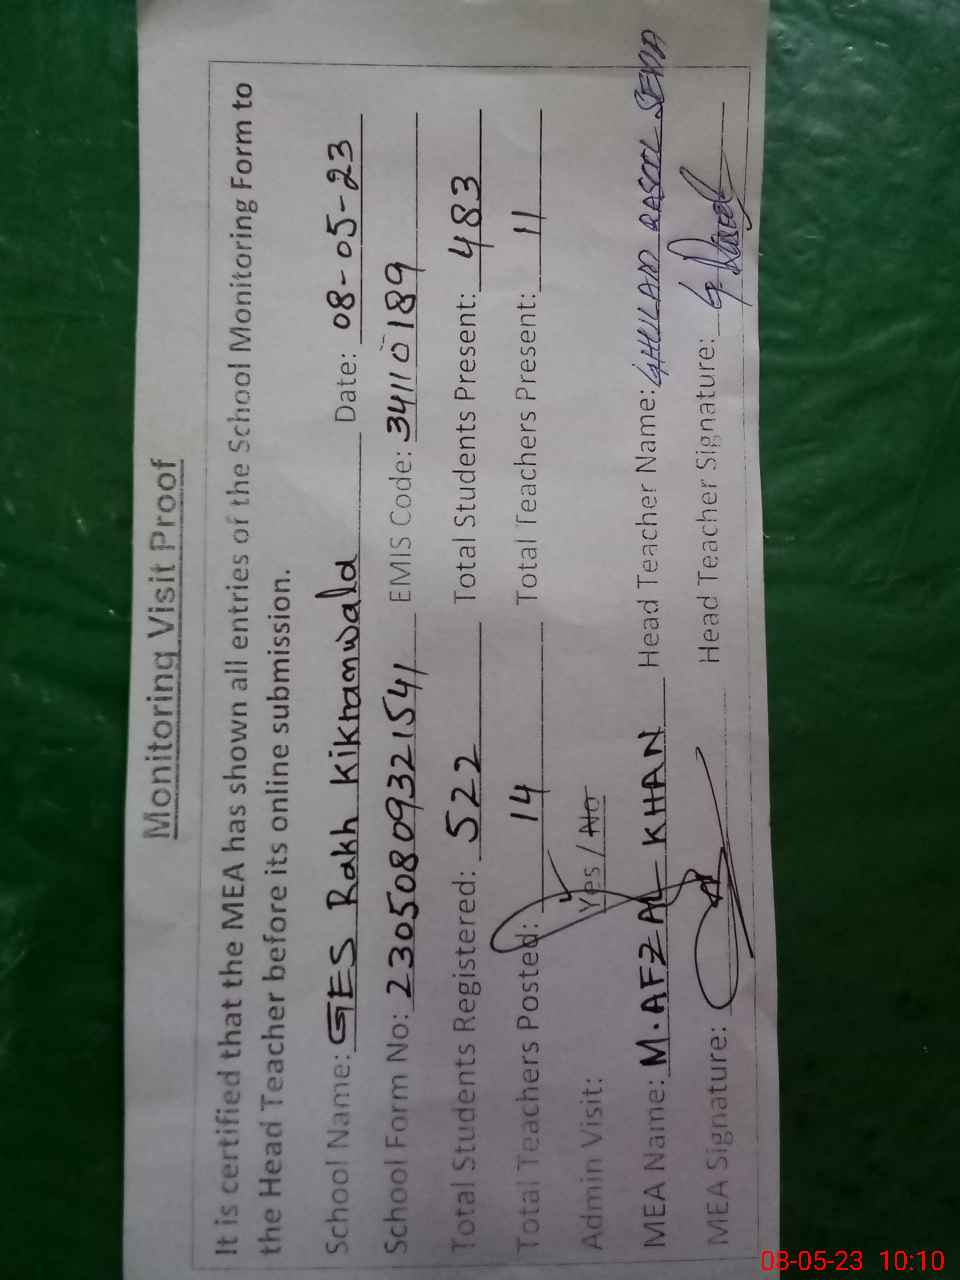 Monitoring Visit Proof
It is certified that the MEA has shown all entries of the School Monitoring Form to
the Head Teacher before its online submission.
School Name: GES Rakh Kikranwala Date: 08-05-23
School Form No: 230508093215 41 EMIS Code: 34110189
Total Students Registered: 522 Total Students Present: 483
Total Teachers Posted: 14 Total Teachers Present: 11
Admin Visit: Yes / No
MEA Name: M. AFZAL KHAN Head Teacher Name: GHULAM RASOOL
MEA Signature: Head Teacher Signature:
08-05-23 10:10